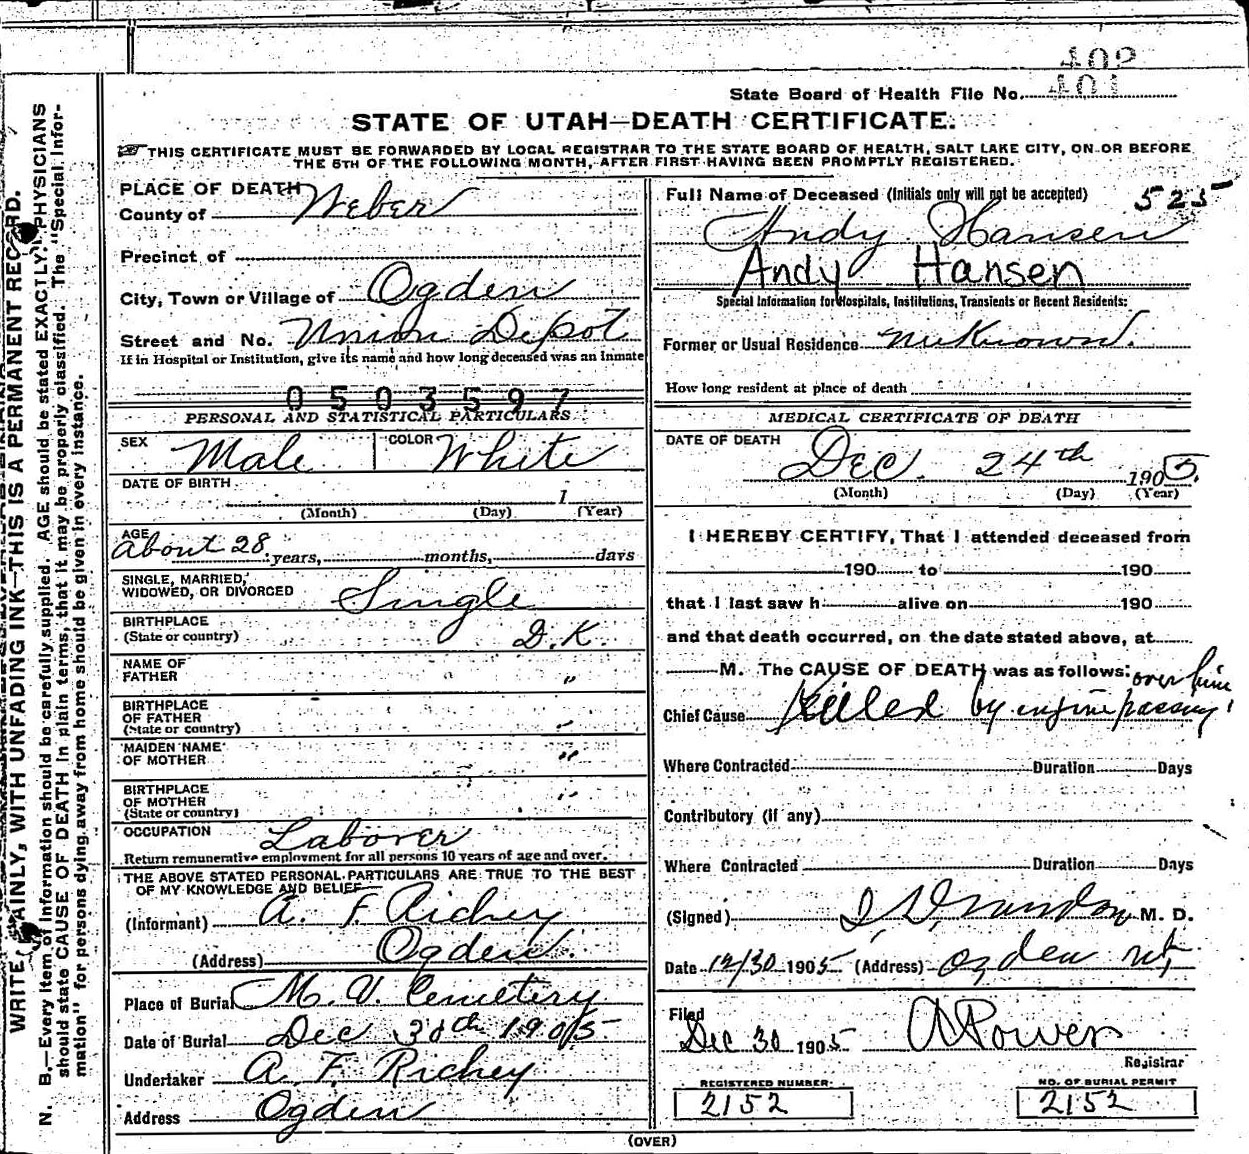 402
State Board of Health File No. 401
STATE OF UTAH—DEATH CERTIFICATE.
THIS CERTIFICATE MUST BE FORWARDED BY LOCAL REGISTRAR TO THE STATE BOARD OF HEALTH, SALT LAKE CITY, ON OR BEFORE
THE 5TH OF THE FOLLOWING MONTH, AFTER FIRST HAVING BEEN PROMPTLY REGISTERED.
WRITE PLAINLY, WITH UNFADING INK—THIS IS A PERMANENT RECORD.
N. B.—Every item of information should be carefully supplied. AGE should be stated EXACTLY. PHYSICIANS
should state CAUSE OF DEATH in plain terms, that it may be properly classified. The "Special Infor-
mation" for persons dying away from home should be given in every instance.
PLACE OF DEATH
County of Weber
Precinct of
City, Town or Village of Ogden
Street and No. Union Depot
If in Hospital or Institution, give its name and how long deceased was an inmate
0503597
PERSONAL AND STATISTICAL PARTICULARS
SEX Male COLOR White
DATE OF BIRTH 1
(Month) (Day) (Year)
AGE
About 28 years, months, days
SINGLE, MARRIED,
WIDOWED, OR DIVORCED Single
BIRTHPLACE
(State or country) D.K.
NAME OF
FATHER "
BIRTHPLACE
OF FATHER
(State or country) "
MAIDEN NAME
OF MOTHER "
BIRTHPLACE
OF MOTHER
(State or country) "
OCCUPATION Laborer
Return remunerative employment for all persons 10 years of age and over.
THE ABOVE STATED PERSONAL PARTICULARS ARE TRUE TO THE BEST
OF MY KNOWLEDGE AND BELIEF
(Informant) A. F. Richey
(Address) Ogden.
Place of Burial M. V. Cemetery
Date of Burial Dec 30th 1905
Undertaker A. F. Richey
Address Ogden
Full Name of Deceased (Initials only will not be accepted) 525
Andy Hansen
Andy Hansen
Special Information for Hospitals, Institutions, Transients or Recent Residents:
Former or Usual Residence unKnown.
How long resident at place of death
MEDICAL CERTIFICATE OF DEATH
DATE OF DEATH
Dec. 24th 1905.
(Month) (Day) (Year)
I HEREBY CERTIFY, That I attended deceased from
190 to 190
that I last saw h alive on 190
and that death occurred, on the date stated above, at
M. The CAUSE OF DEATH was as follows:
Chief Cause Killed by engine passing over him
Where Contracted Duration Days
Contributory (if any)
Where Contracted Duration Days
(Signed) M. D.
Date 12/30 1905 (Address) Ogden Ut,
Filed
Dec 30 1905 A Power
Registrar
REGISTERED NUMBER NO. OF BURIAL PERMIT
2152 2152
(OVER)